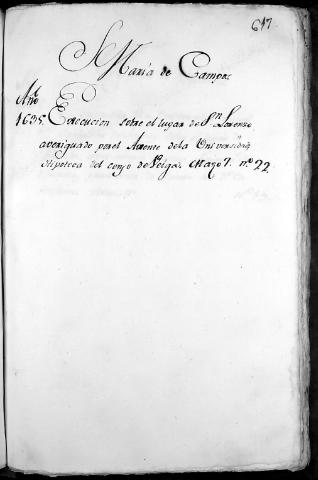 617.
S Maria de Campos
Año
1635. Execucion sobre el lugar de Sn. Lorenzo
averiguado por el Arrente dela Universidad
Hipoteca del conzo de Veiga. Mazo 7. no. 22.